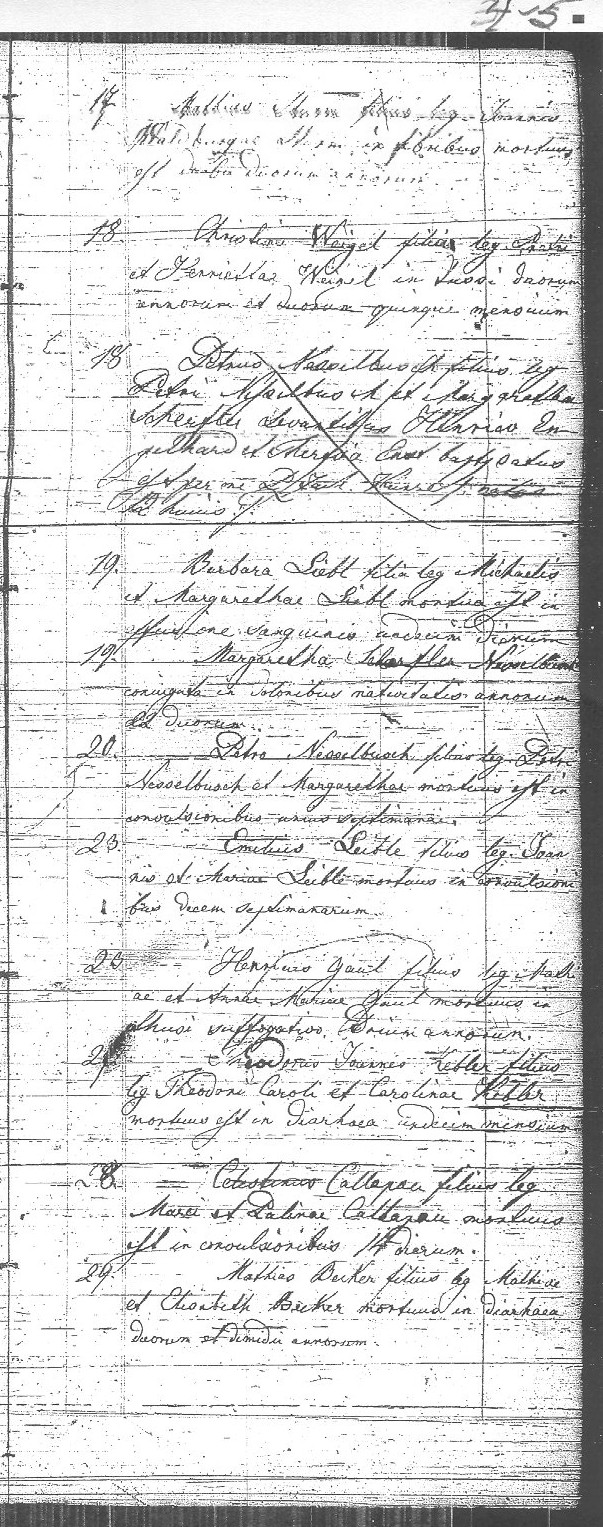 17 Mathius Sturm filius leg. Joannis
Waldburgae Sturm in febribus mortuus
est duorum annorum
18. Christina Weigel filia leg. Petri
et Henriettae Weigel in tussi duorum
annorum et quinque mensium
18 Petrus Nesselbusch filius leg
Petri Nesselbusch et Margaretha
Scherfler levantibus Henrico En
gelhard et Theresia Ernst baptizatus
est per me natus
12 huius
19. Barbara Liebl filia leg Michaelis
et Margarethae Liebl mortua est in
effusione sanguinis undecim dierum
19. Margaretha Scherfler Nesselbusch
coniugata in doloribus nativitatis annorum
22 duorum
20. Petro Nesselbusch filius leg. Petri
Nesselbusch et Margarethae mortuus est in
convulsionibus unius septimanae.
23 Emilius Leible filius leg. Joan
nis et Mariae Leible mortuus in convulsioni
bus decem septimanarum.
23 Henricus Gaul filius leg Mathi
ae et Annae Mariae Gaul mortuus in
thusi suffogativo. trium annorum.
Theodorus Joannes Kebler filius
leg Theodori Caroli et Carolinae Kebler
mortuus est in diarhaea undecim mensium
28. Celestinus Callapau filius leg
Marci et Palinae Callapau mortuus
est in convulsionibus 14 dierum.
29. Mathias Becker filius leg Mathiae
et Elisabeth Becker mortuus in diarhaea
duorum et dimidii annorum.